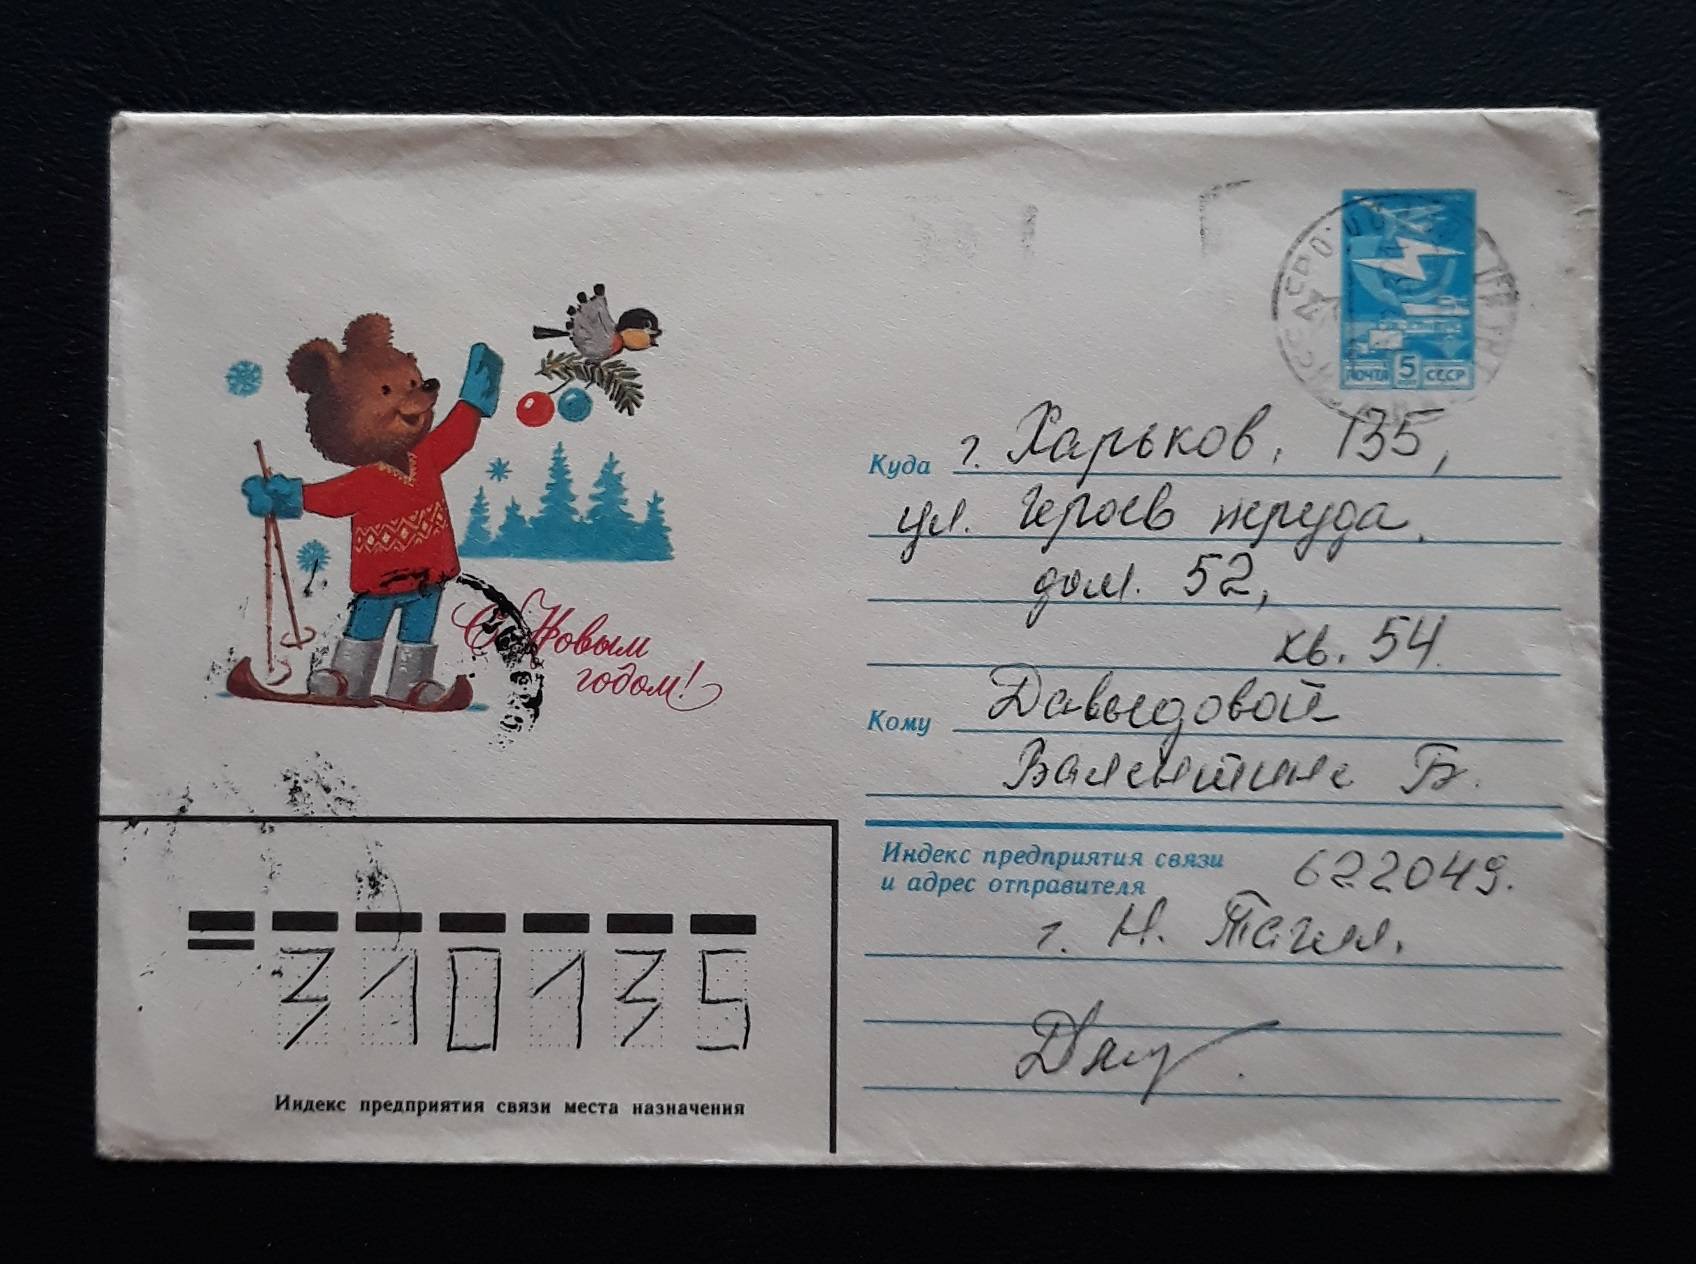 С Новым
годом!
ПОЧТА 5 СССР
Куда г. Харьков, 135,
ул. Героев труда,
дом. 52,
кв. 54.
Кому Давыдовой
Валентине Б.
Индекс предприятия связи 622049.
и адрес отправителя
г. Н. Тагил.
310135
Индекс предприятия связи места назначения